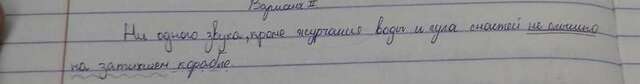 Вариант II
Ни одного звука, кроме журчания воды и гула снастей не слышно
на затихшем корабле.